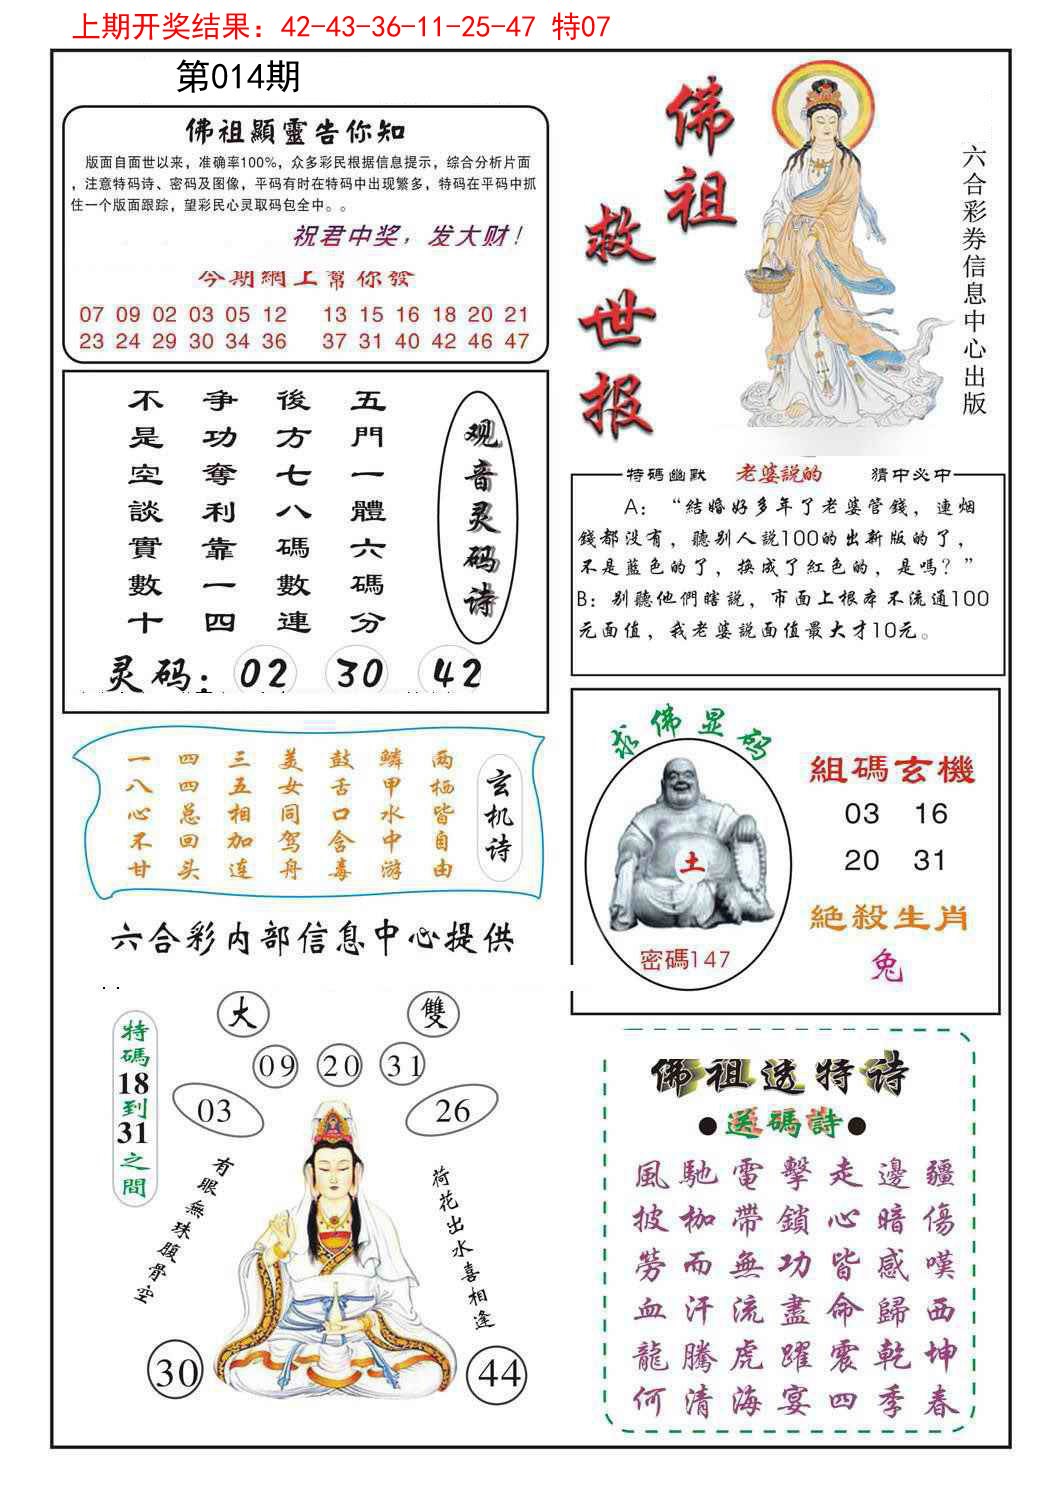 上期开奖结果：42-43-36-11-25-47 特07
第014期
佛祖顯靈告你知
版面自面世以来，准确率100%，众多彩民根据信息提示，综合分析片面
，注意特码诗、密码及图像，平码有时在特码中出现繁多，特码在平码中抓
住一个版面跟踪，望彩民心灵取码包全中。。
祝君中奖，发大财！
今期網上幫你發
07 09 02 03 05 12 13 15 16 18 20 21
23 24 29 30 34 36 37 31 40 42 46 47
佛祖
救世报
六合彩券信息中心出版
观音灵码诗
五門一體六碼分
後方七八碼數連
争功奪利靠一四
不是空談實數十
灵码：02 30 42
特碼幽默 老婆説的 猜中必中
A：“結婚好多年了老婆管錢，連烟
錢都没有，聽别人説100的出新版的了，
不是藍色的了，换成了紅色的，是嗎？”
B：别聽他們瞎説，市面上根本不流通100
元面值，我老婆説面值最大才10元。
玄机诗
两栖皆自由
鳞甲水中游
鼓舌口含毒
美女同驾舟
三五相加连
四四总回头
一八心不甘
六合彩内部信息中心提供
求佛显码
土
密碼147
組碼玄機
03 16
20 31
絶殺生肖
兔
大 雙
09 20 31
03 26
特碼18到31之間
有眼無珠腹骨空
荷花出水喜相逢
30 44
佛祖透特诗
●送碼詩●
風馳電擊走邊疆
披枷帶鎖心暗傷
勞而無功皆感嘆
血汗流盡命歸西
龍騰虎躍震乾坤
何清海宴四季春